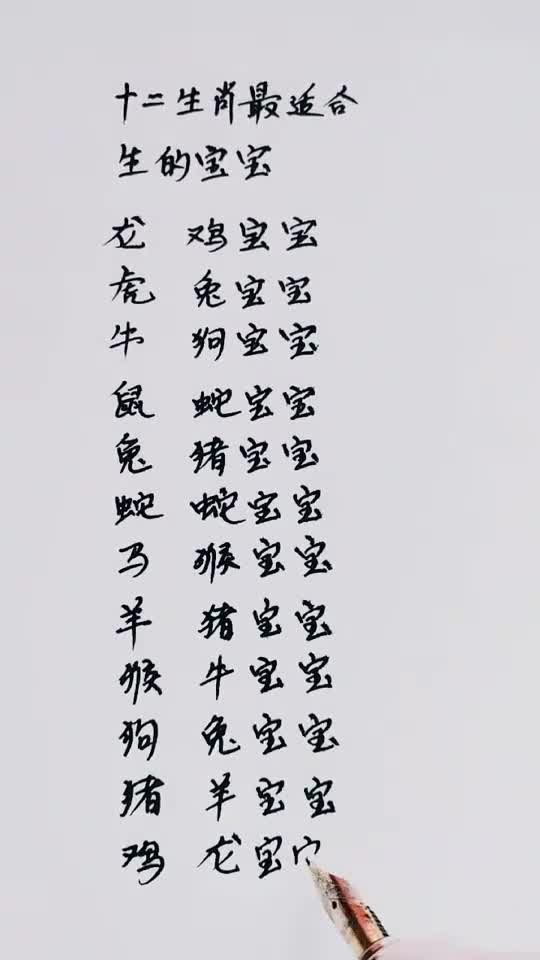 十二生肖最适合
生的宝宝
龙 鸡宝宝
虎 兔宝宝
牛 狗宝宝
鼠 蛇宝宝
兔 猪宝宝
蛇 蛇宝宝
马 猴宝宝
羊 猪宝宝
猴 牛宝宝
狗 兔宝宝
猪 羊宝宝
鸡 龙宝